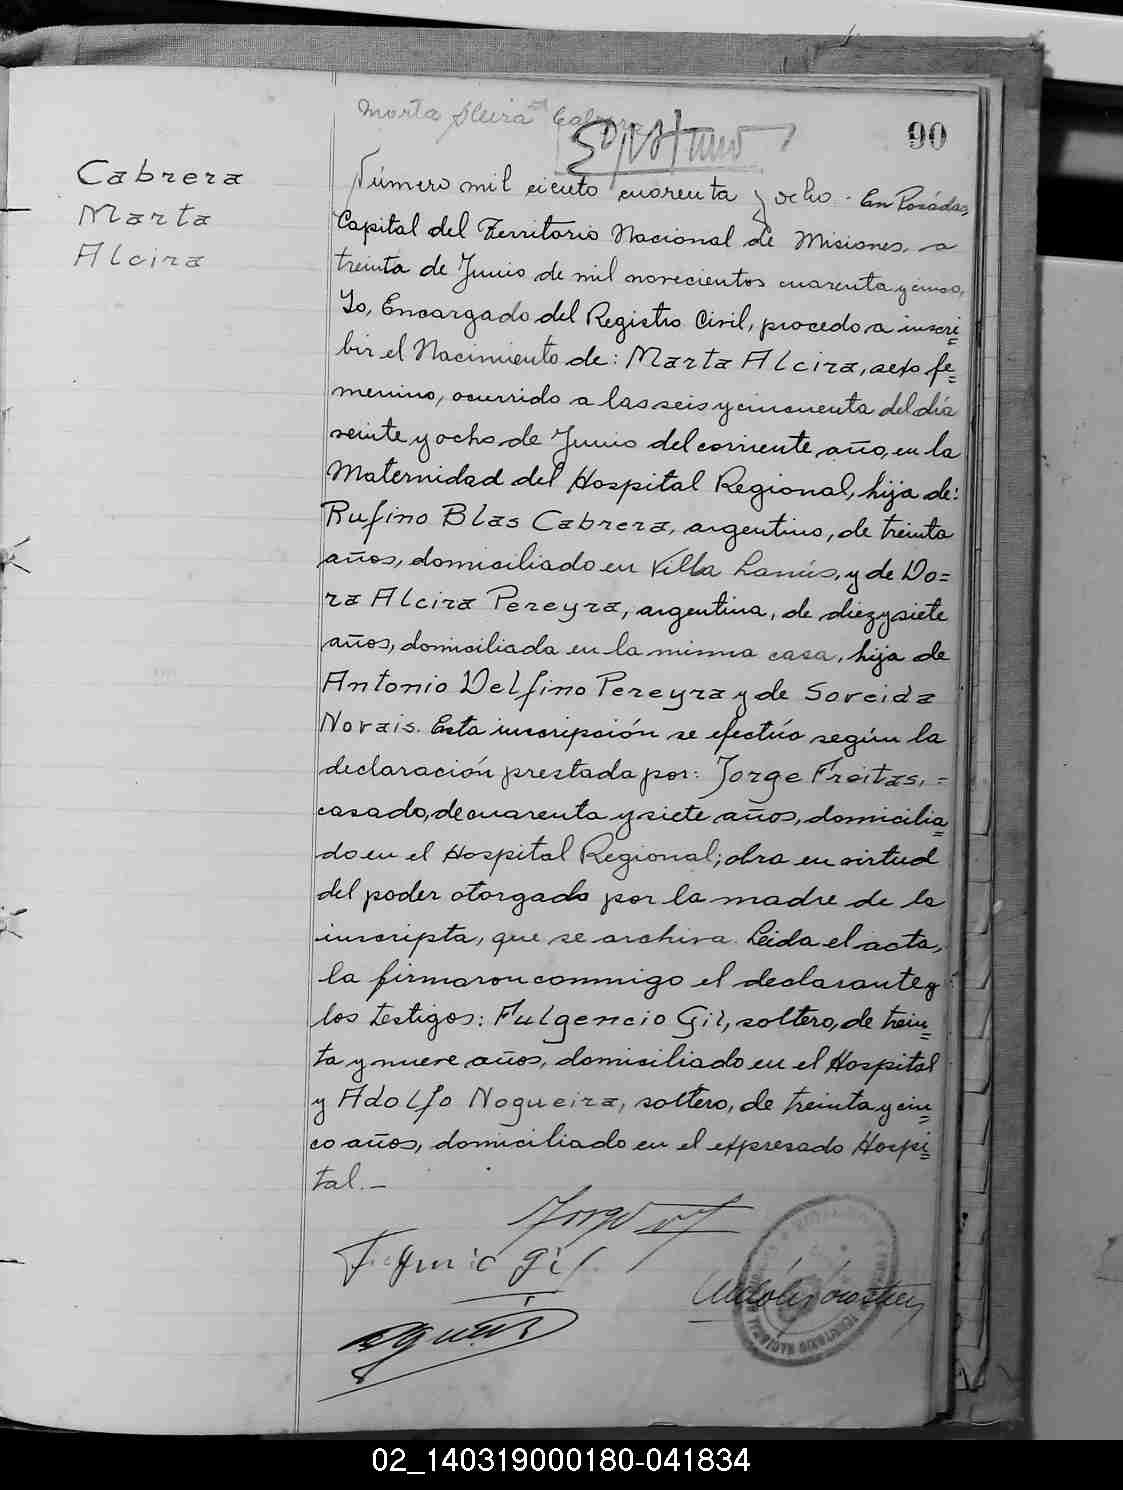 Marta Alcira Cabrera
90
Cabrera
Marta
Alcira
Número mil ciento cuarenta y ocho. En Posadas,
Capital del Territorio Nacional de Misiones, a
treinta de Junio de mil novecientos cuarenta y cinco,
Yo, Encargado del Registro Civil, procedo a inscri=
bir el Nacimiento de: Marta Alcira, sexo fe=
menino, ocurrido a las seis y cincuenta del día
veinte y ocho de Junio del corriente año, en la
Maternidad del Hospital Regional, hija de:
Rufino Blas Cabrera, argentino, de treinta
años, domiciliado en Villa Lanús, y de Do=
ra Alcira Pereyra, argentina, de diez y siete
años, domiciliada en la misma casa, hija de
Antonio Delfino Pereyra y de Soreida
Novais. Esta inscripción se efectúa según la
declaración prestada por: Jorge Freitas, =
casado, de cuarenta y siete años, domicilia=
do en el Hospital Regional; obra en virtud
del poder otorgado por la madre de la
inscripta, que se archiva. Leida el acta,
la firmaron conmigo el declarante y
los testigos: Fulgencio Gil, soltero, de trein=
ta y nueve años, domiciliado en el Hospital
y Adolfo Nogueira, soltero, de treinta y cin=
co años, domiciliado en el expresado Hospi=
tal. -
Jorge
Gil
02_140319000180-041834